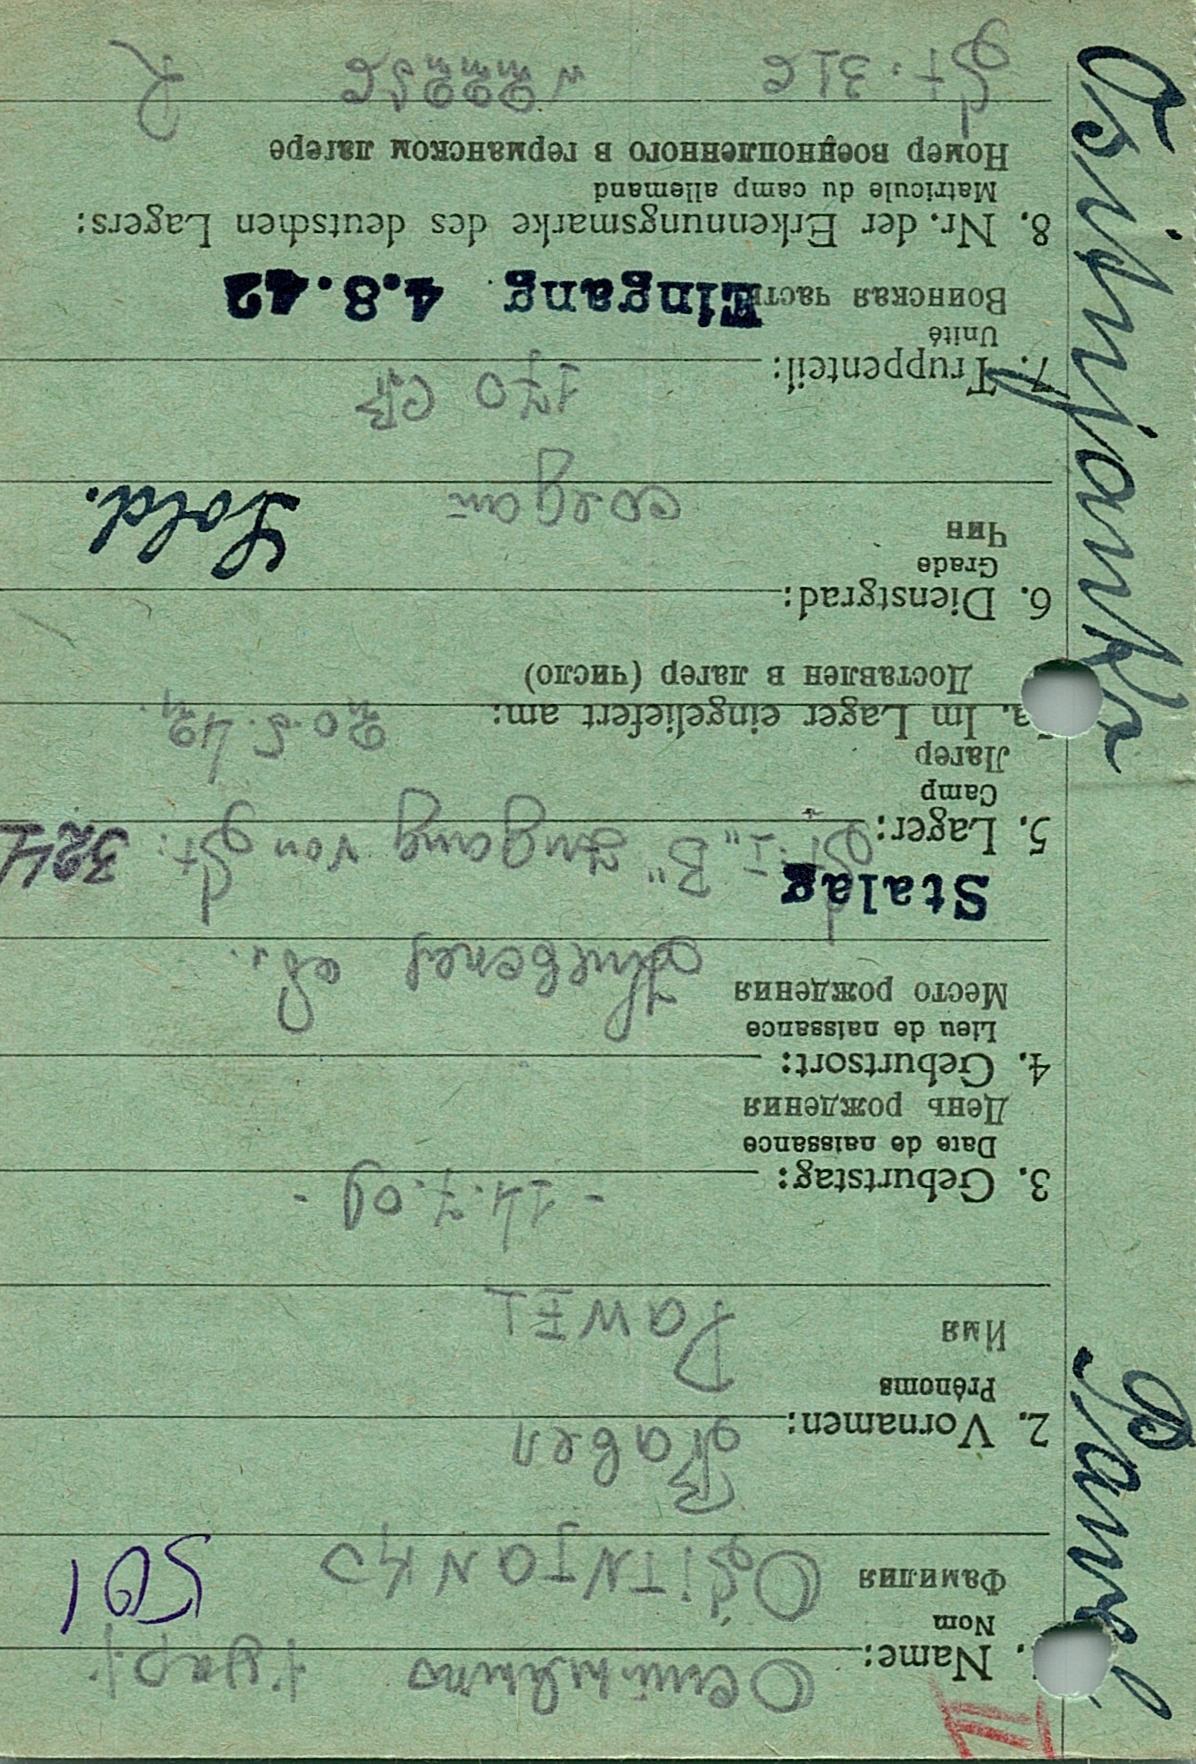 Ositnjanko Pawel
III
1. Name:
Nom
Фамилия
OSITNJANKO
501
2. Vornamen: Павел
Prénoms
Имя
PAWEL
3. Geburtstag: - 14.7.09 -
Date de naissance
День рождения
4. Geburtsort:
Lieu de naissance
Место рождения
Киевская обл.
Stalag
5. Lager: St. I "B" Zugang von St: 324
Camp
Лагер
5a. Im Lager eingeliefert am: 20.5.42
Доставлен в лагер (число)
6. Dienstgrad:
Grade
Чин
солдат Sold.
7. Truppenteil: 170 сп
Unité
Воинская часть Eingang 4.8.42
8. Nr. der Erkennungsmarke des deutschen Lagers:
Matricule du camp allemand
Номер военнопленного в германском лагере
St. 316